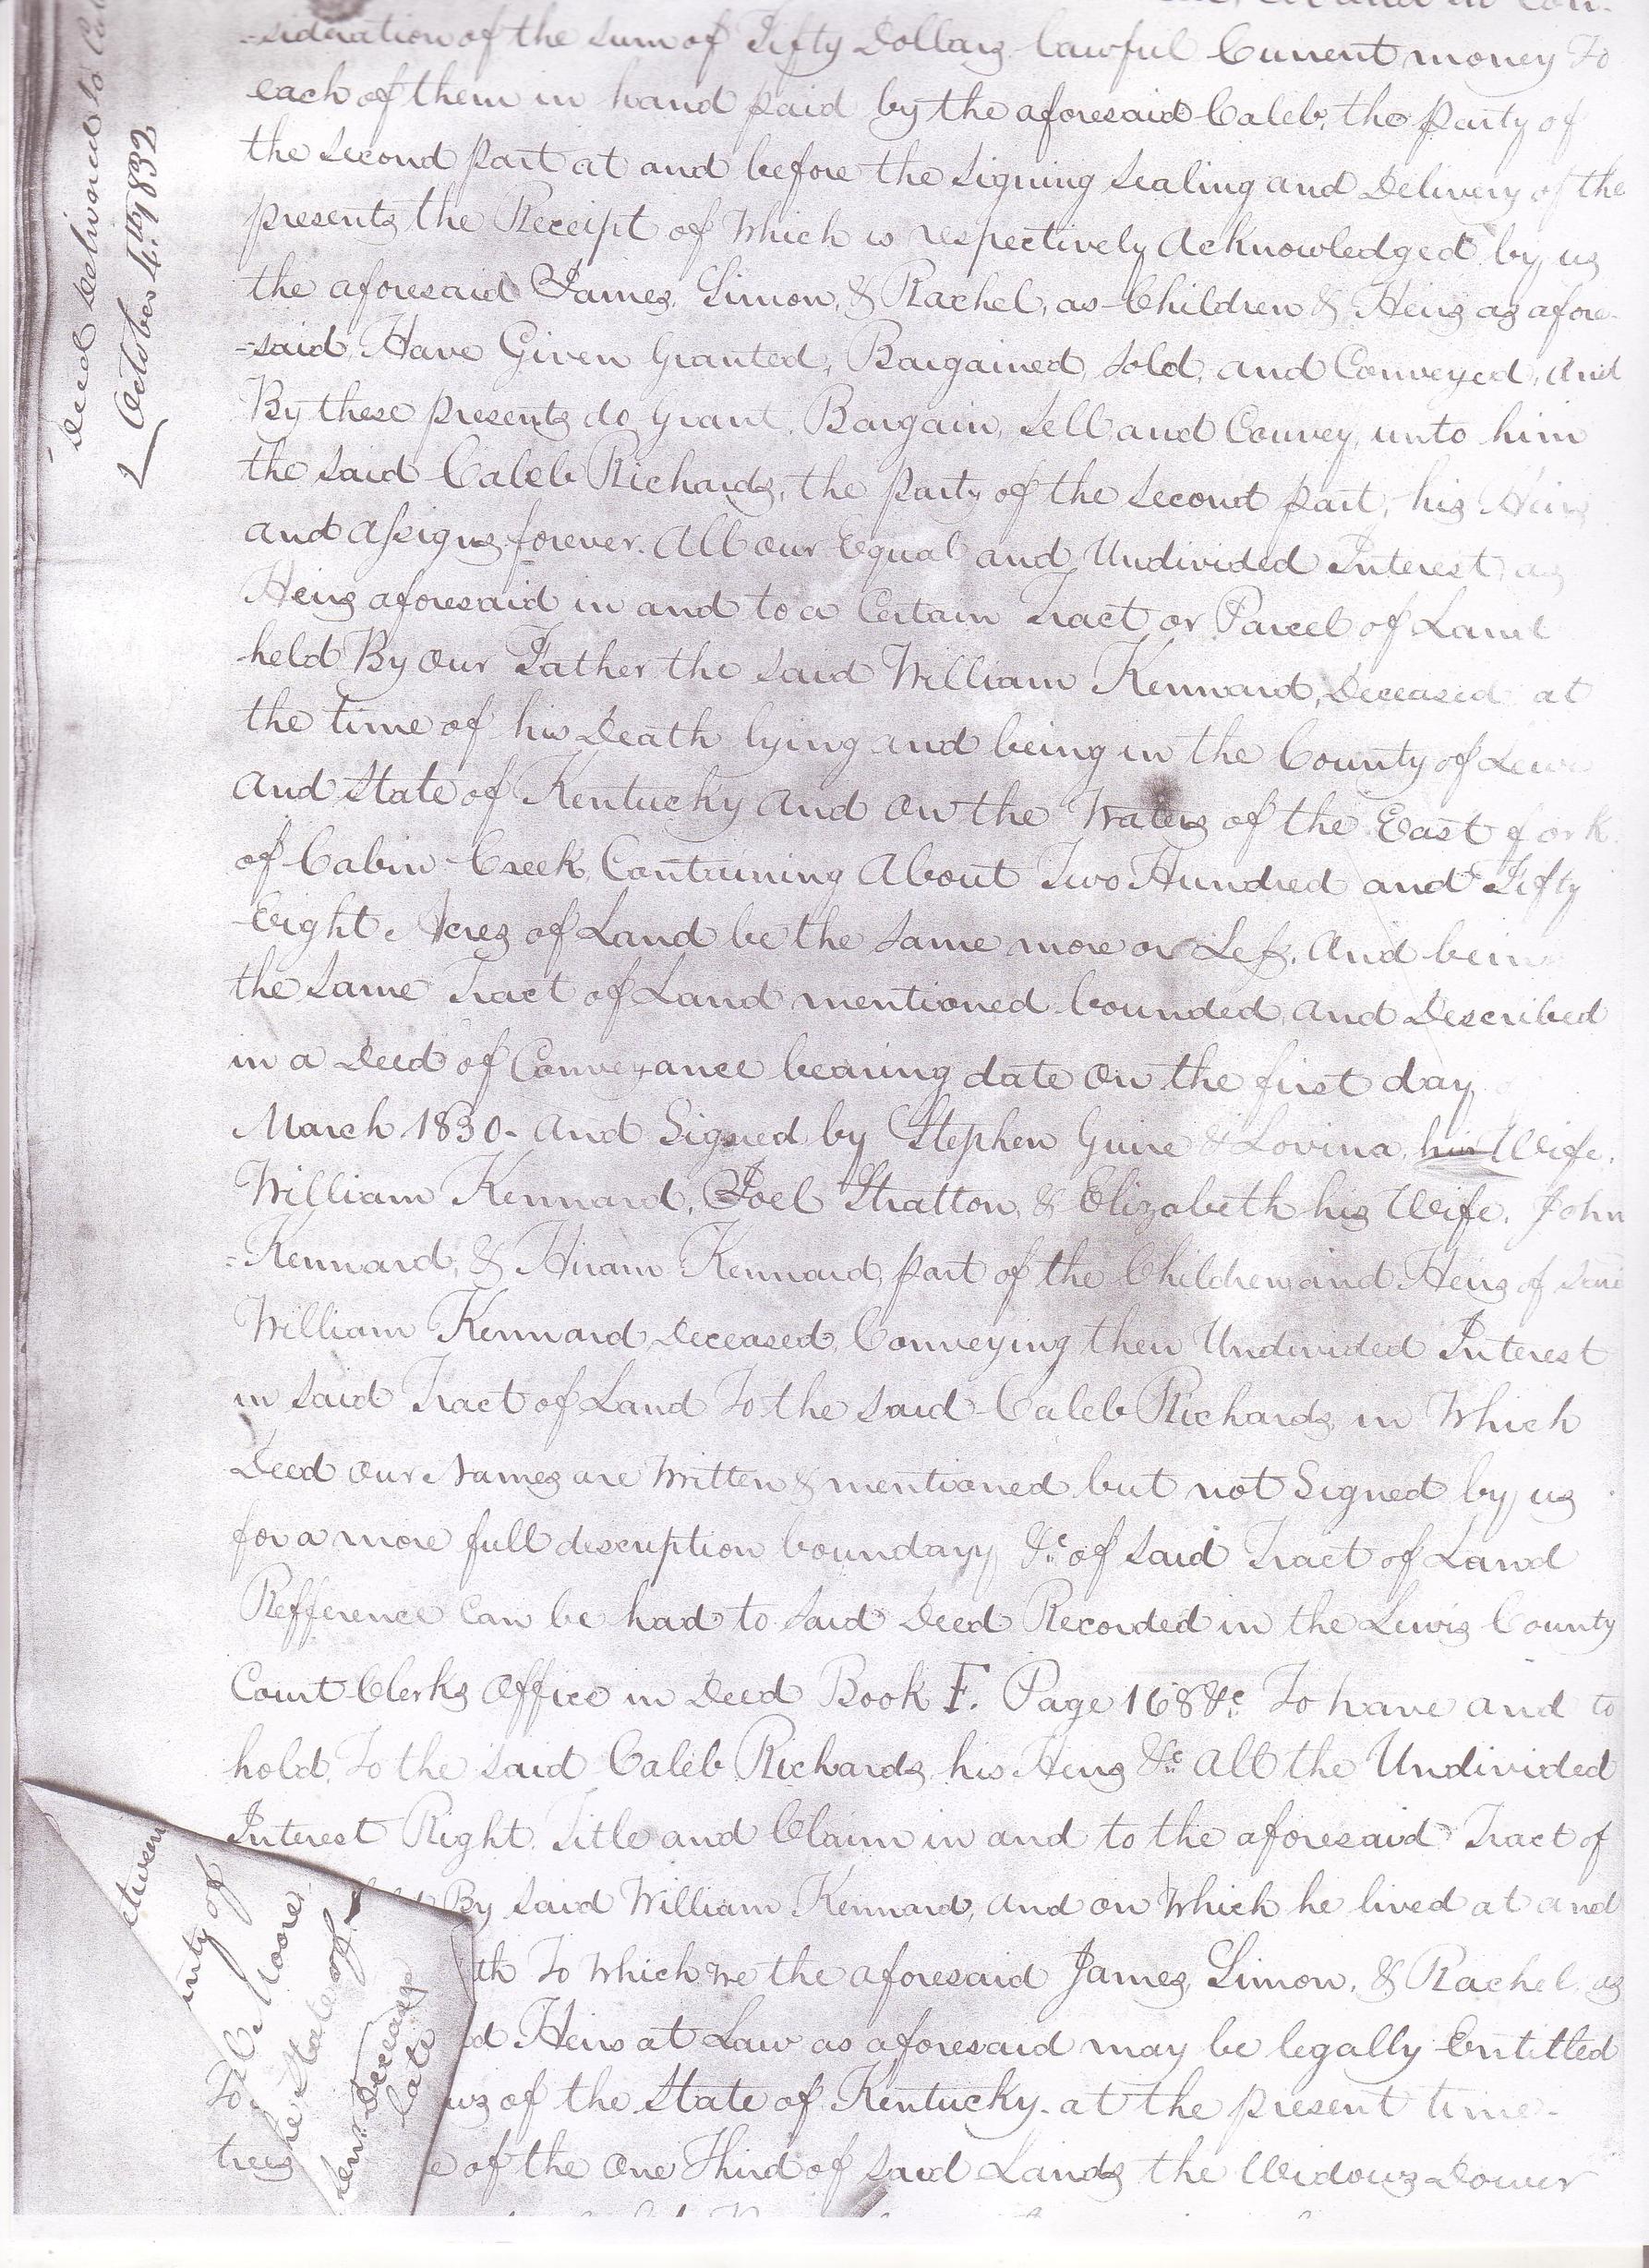 Deed delivered to Cal
October 4th 1832
-sideration of the sum of Fifty Dollars lawful Current money To
each of them in hand paid by the aforesaid Caleb, the party of
the second part at and before the signing sealing and Delivery of the
presents the Receipt of Which is respectively Acknowledged by us
the aforesaid James, Simon, & Rachel, as Children & Heirs as afore-
-said, Have Given Granted, Bargained, Sold, and Conveyed, and
By these presents do Grant, Bargain, Sell and Convey, unto him
the said Caleb Richards, the party of the second part, his Heirs
and assigns forever. All our Equal and Undivided Interest as
Heirs aforesaid in and to a Certain Tract or Parcel of Land
held By our Father the said William Kennard, Deceased at
the time of his Death lying and being in the County of Lewis
and State of Kentucky and on the Waters of the East fork
of Cabin Creek, Containing About Two Hundred and Fifty
Eight Acres of Land be the same more or Less, and bein
the same Tract of Land mentioned bounded and Described
in a Deed of Conveyance bearing date on the first day
March 1830- and Signed by Stephen Guine & Lovina his Wife,
William Kennard, Joel Stratton, & Elizabeth his Wife, John
=Kennard, & Hiram Kennard, part of the Children and Heirs of said
William Kennard Deceased, Conveying their Undivided Interest
in said Tract of Land To the said Caleb Richards, in Which
Deed our Names are Written & mentioned but not Signed by us
for a more full description boundary &c of said Tract of Land
Refference can be had to said Deed Recorded in the Lewis County
Court Clerks Office in Deed Book F. Page 168 &c To have and to
hold, To the said Caleb Richards his Heirs &c All the Undivided
Interest Right Title and Claim in and to the aforesaid Tract of
By said William Kennard, and on Which he lived at and
th To which we the aforesaid James, Simon, & Rachel, as
d Heirs at Law as aforesaid may be legally Entitled
ws of the State of Kentucky at the present time-
e of the One Third of said Lands the Widows Dower
etween
unty of
Moore
the State of
Deceasd
late